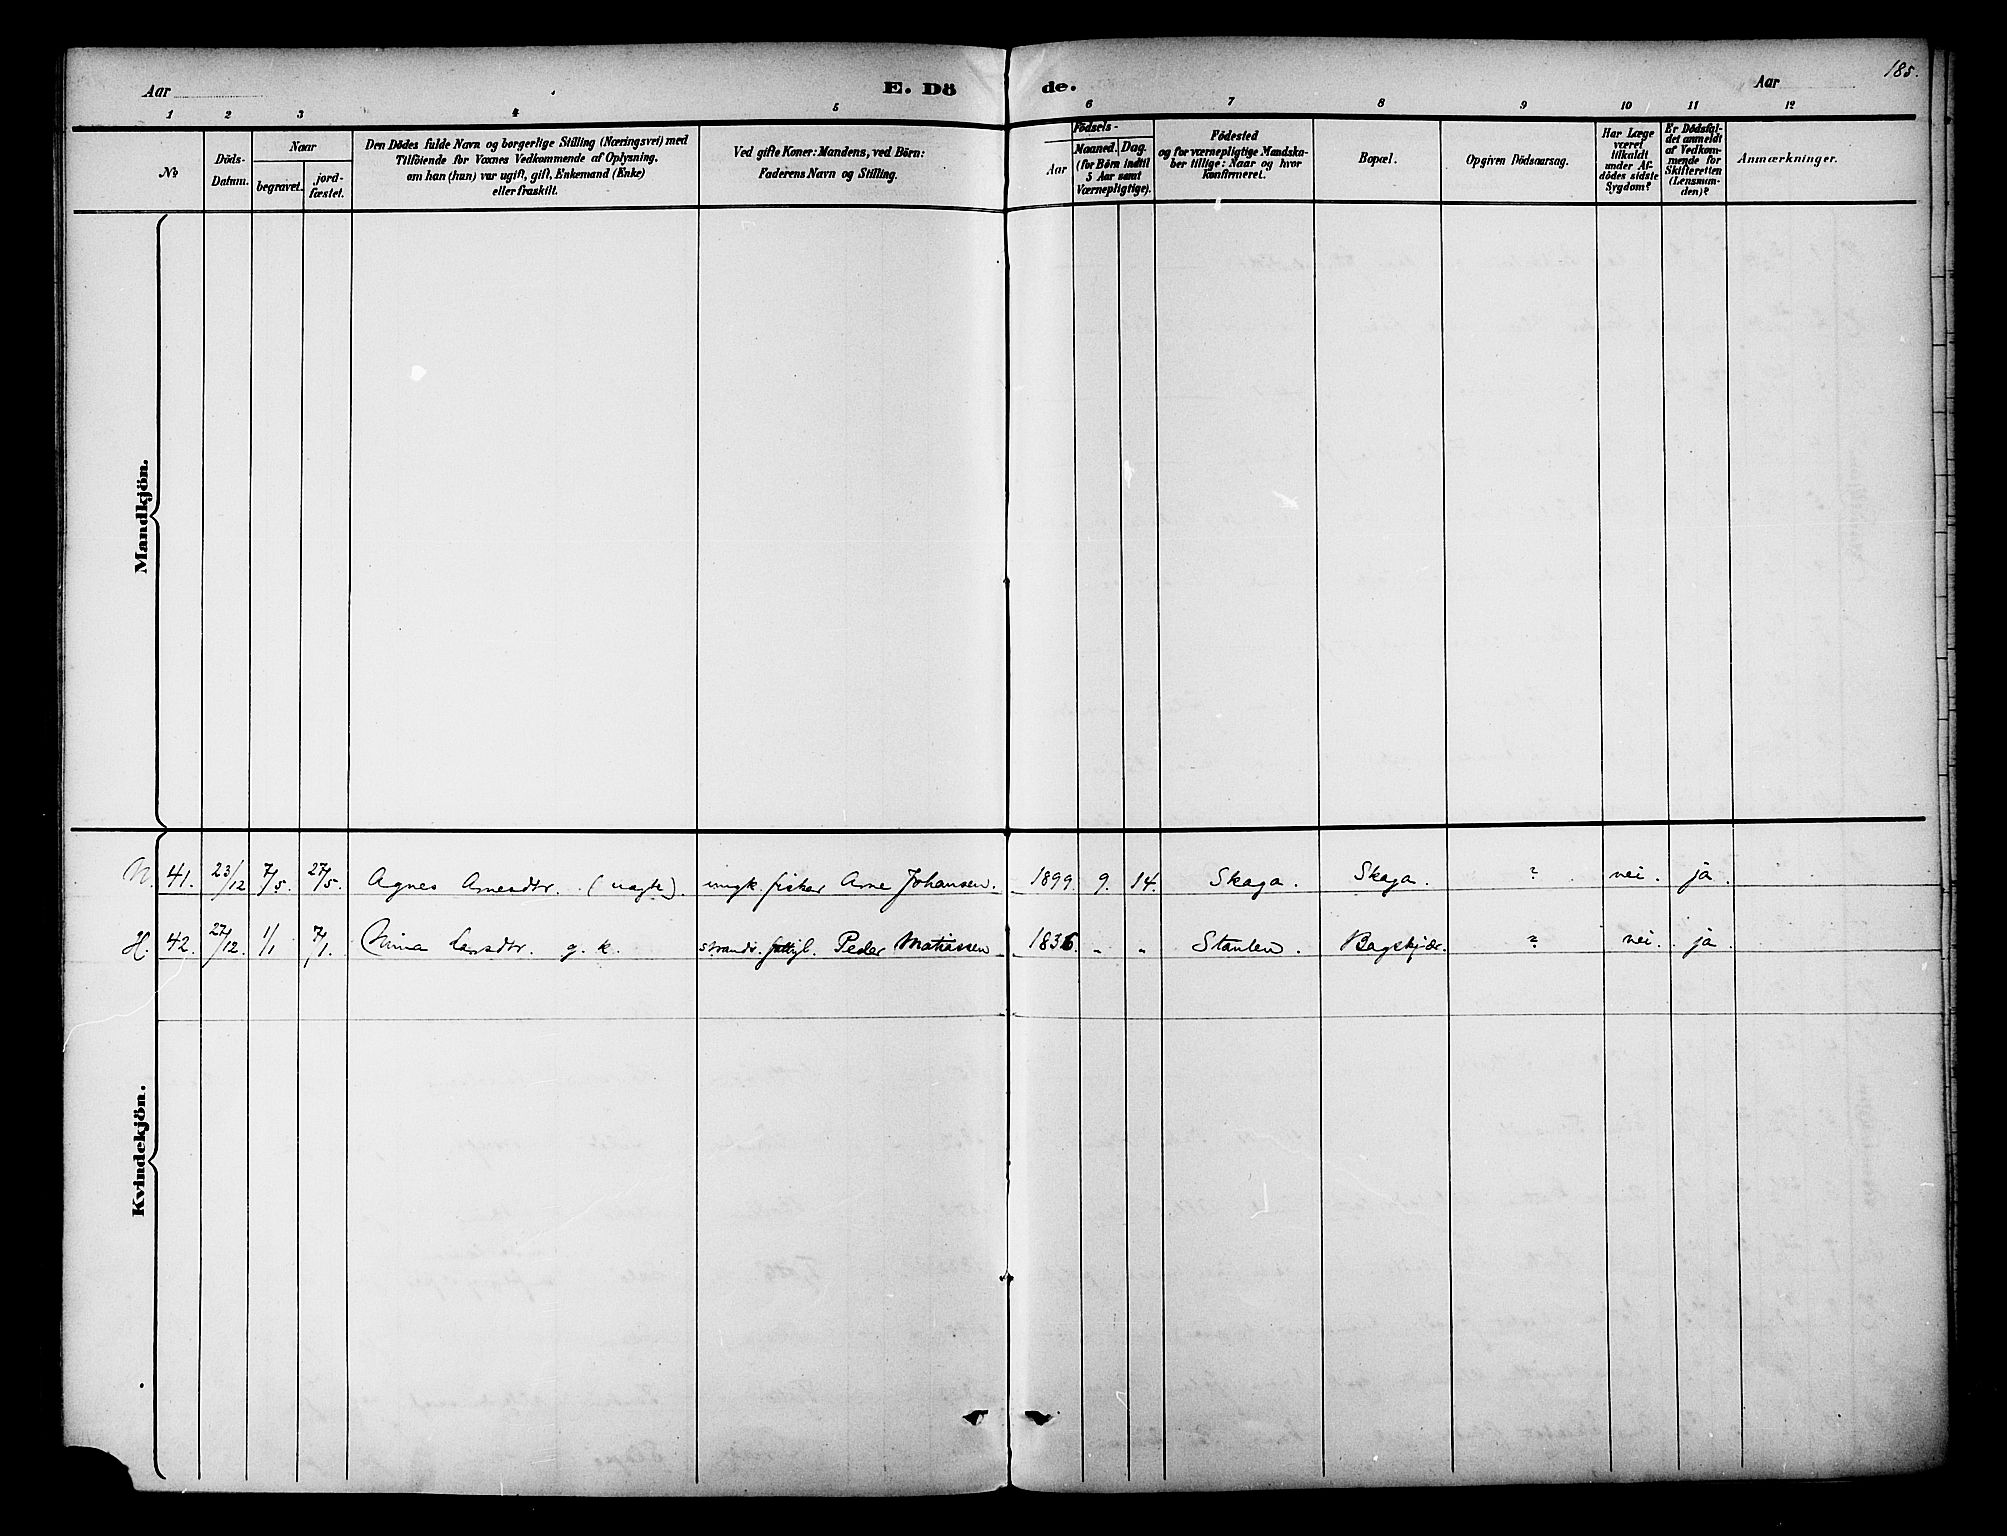 185.
Aar E. Döde. Aar
1 2 3 4 5 6 7 8 9 10 11 12
No
Döds-Datum.
Naar
begravet.
jord-
fæstet.
Den Dödes fulde Navn og borgerlige Stilling (Næringsvei) med
Tilföiende for Voxnes Vedkommende af Oplysning,
om han (hun) var ugift, gift, Enkemand (Enke)
eller fraskilt.
Ved gifte Koner: Mandens, ved Börn:
Faderens Navn og Stilling.
Födsels-
Aar
Maaned. Dag.
(for Börn indtil
5 Aar samt
Værnepligtige).
Födested
og for værnepligtige Mandska-
ber tillige: Naar og hvor
konfirmeret.
Bopæl.
Opgiven Dödsaarsag.
Har Læge
været
tilkaldt
under Af-
dödes sidste
Sygdom?
Er Dödsfal-
det anmeldt
af Vedkom-
mende for
Skifteretten
(Lensman-
den)?
Anmærkninger.
Mandkjön.
N. 41. 23/12 7/5. 27/5. Agnes Arnesdtr. (uægte). ungk. fisker Arne Johansen. 1899. 9. 14. Skaga. Skaga. ? nei. ja.
H. 42. 27/12. 1/1 7/1. Larsdtr. g. k. strands. Peder Matiassen 1836. " " Stanlen. Bagskjær. ? nei. ja
Kvindekjön.